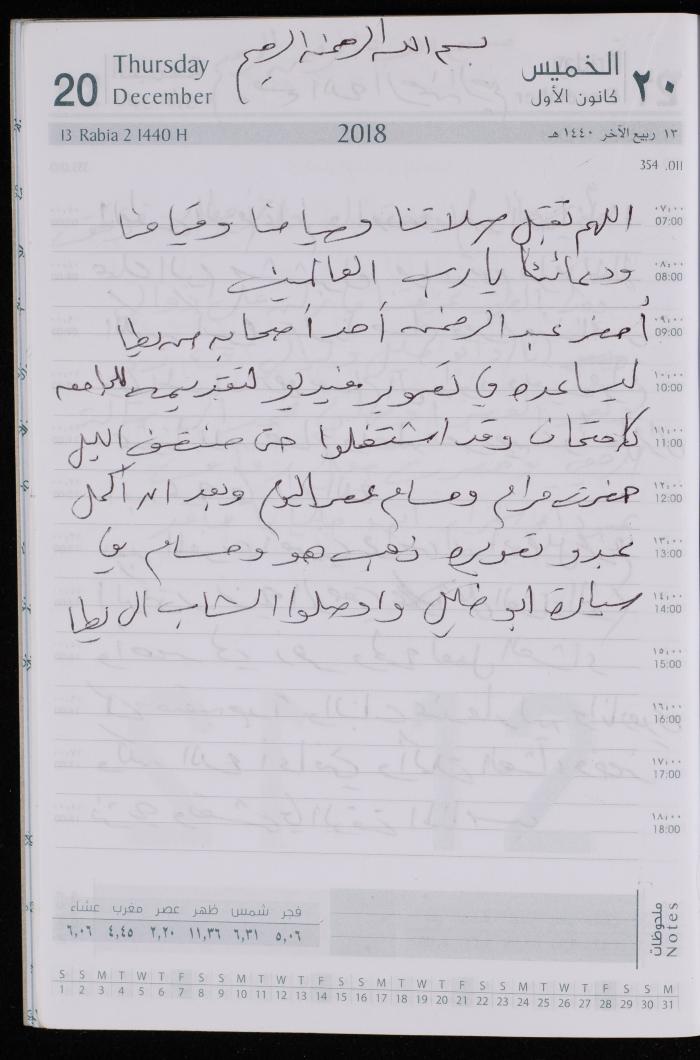 بسم الله الرحمن الرحيم
20 Thursday December
الخميس ٢٠ كانون الأول
13 Rabia 2 1440 H 2018 ١٣ ربيع الآخر ١٤٤٠ هـ
354 .011
٠٧:٠٠ 07:00 اللهم تقبل صلاتنا وصيامنا وقيامنا
٠٨:٠٠ 08:00 ودعائنا يا رب العالمين
٠٩:٠٠ 09:00 أحضر عبد الرحمن أحد أصحابه من يطا
١٠:٠٠ 10:00 ليساعده في تصوير فيديو لتقديمه للجامعه
١١:٠٠ 11:00 كامتحان وقد اشتغلوا حتى منتصف الليل
١٢:٠٠ 12:00 حضرت مرام وحسام عصر اليوم وبعد ان أكمل
١٣:٠٠ 13:00 عبدو تصويره ذهب هو وحسام في
١٤:٠٠ 14:00 سيارة ابو خليل واوصلوا الشاب الى يطا
١٥:٠٠ 15:00
١٦:٠٠ 16:00
١٧:٠٠ 17:00
١٨:٠٠ 18:00
ملحوظات Notes
فجر شمس ظهر عصر مغرب عشاء
٥,٠٦ ٦,٣١ ١١,٣٦ ٢,٢٠ ٤,٤٥ ٦,٠٦
S S M T W T F S S M T W T F S S M T W T F S S M T W T F S S M
1 2 3 4 5 6 7 8 9 10 11 12 13 14 15 16 17 18 19 20 21 22 23 24 25 26 27 28 29 30 31